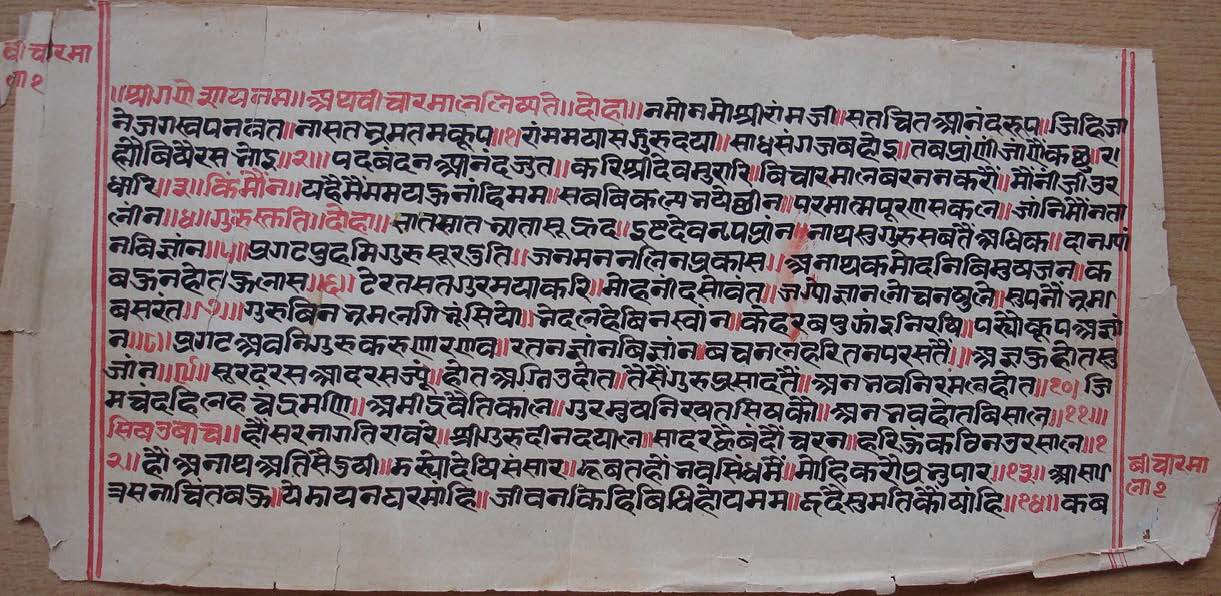 बीचारमा
ला१
॥श्रीगणेशायनम॥अथवीचारमाललिष्यते॥दोहा॥नमोनमोश्रीरांमजी॥सतचितआनंदरूप॥जिहिजा
नेजगस्वपनवत॥नासतभ्रमतमकूप॥१॥रांममयासगुरुदया॥साधसंगजबहोइ॥तबप्रांणीजांणैकछु॥र
ह्यौबिषैरसभोइ॥२॥पदबंदनआनंदजुत॥करिश्रीदेवमुरारि॥विचारमालबरननकरौं॥मौंनीजीउर
धारि॥३॥किंमौंन॥यहमैंममयहनांहिमम॥सबबिकल्पभयेछीन॥परमात्मपूरणसकल॥जांनिमौंनता
लीन॥४॥गुरुस्तति॥दोहा॥मातसातभ्रातासूहृद॥इष्टदेवनृपप्रांन॥नाथसुगुरुसबतैंअधिक॥दानग्यां
नबिज्ञांन॥५॥प्रगटप्रुदमिगुरुसूरउति॥जनमननलिनप्रकास॥अनाथकमोदनिबिमुषजन॥क
बऊनहोतऊलास॥६॥टेरतसतगुरमयाकरि॥मोहनींदसोवत॥जग्यौज्ञानलोचनषुले॥सुपनौंभ्रमा
बसरंत॥७॥गुरुबिनभ्रमलगिभूंसियो॥भेदलहेबिनस्वांन॥केहरबपुझांईनिरषि॥पर्यौकूपअज्ञां
न॥८॥प्रगटअवनिगुरुकरुणारणव॥रतनज्ञांनबिज्ञांन॥बचनलहरितनपरसतैं॥अज्ञऊहोतसु
जांन॥९॥सूरदरसआदरसज्यूं॥होतअगनिउदोत॥तैसैगुरुप्रसादतैं॥अनभवनिरमलहोत॥१०॥जि
मचंदहिलहचंद्रमणि॥अमीद्रवैतिकाल॥गुरमुषनिरषतसिषकौ॥अनभवहोतबिसाल॥११॥
सिष्यउवाच॥हौंसरनागतिरावरे॥श्रीगुरुदीनदयाल॥सादरह्वैबंदौंचरन॥हरिऊकठिनउरसाल॥१
२॥हौंअनाथअतिसैदुषी॥डर्योदेषिसंसार॥बूडतहौंभवसिंधमैं॥मोहिकरौप्रभुपार॥१३॥आसा
त्रसनाचिंतबऊ॥येडायनघरमांहि॥जीवनकिहिबिधिहोयमम॥हृदैसुमतिकौंषांहि॥१४॥कब
बीचारमा
ला२